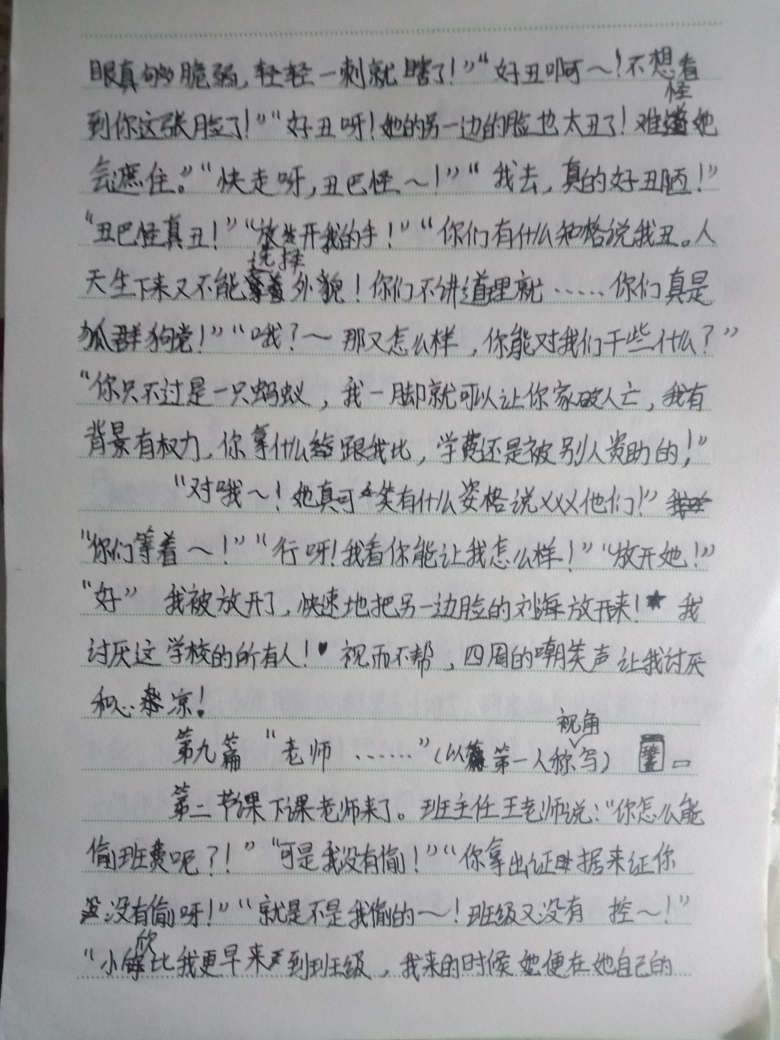 眼真够脆弱，轻轻一刺就瞎了！”“好丑啊～！不想看
到你这张脸了！”“好丑呀！她的另一边的脸也太丑了！难怪她
会遮住。”“快走呀，丑巴怪～！”“我去，真的好丑陋！”
“丑巴怪真丑！”“放开我的手！”“你们有什么格说我丑。人
天生下来又不能选择外貌！你们不讲道理就……你们真是
狐群狗党！”“哦？～那又怎么样，你能对我们干些什么？”
“你只不过是一只蚂蚁，我一脚就可以让你家破人亡，我有
背景有权力，你拿什么跟我比，学费还是被别人资助的！”
“对哦～！她真可笑有什么姿格说XXX他们！”
“你们等着～！”“行呀！我看你能让我怎么样！”“放开她！”
“好”我被放开了，快速地把另一边脸的刘海放开来！★我
讨厌这学校的所有人！♥视而不帮，四周的嘲笑声让我讨厌
和心凉！
第九篇“老师……”（以第一人称视角写）
第二节课下课老师来了。班主任王老师说：“你怎么能
偷班费呢？！”“可是我没有偷！”“你拿出证据来证你
没有偷呀！”“就是不是我偷的～！班级又没有 控～！”
“小欣比我更早来到班级，我来的时候她便在她自己的